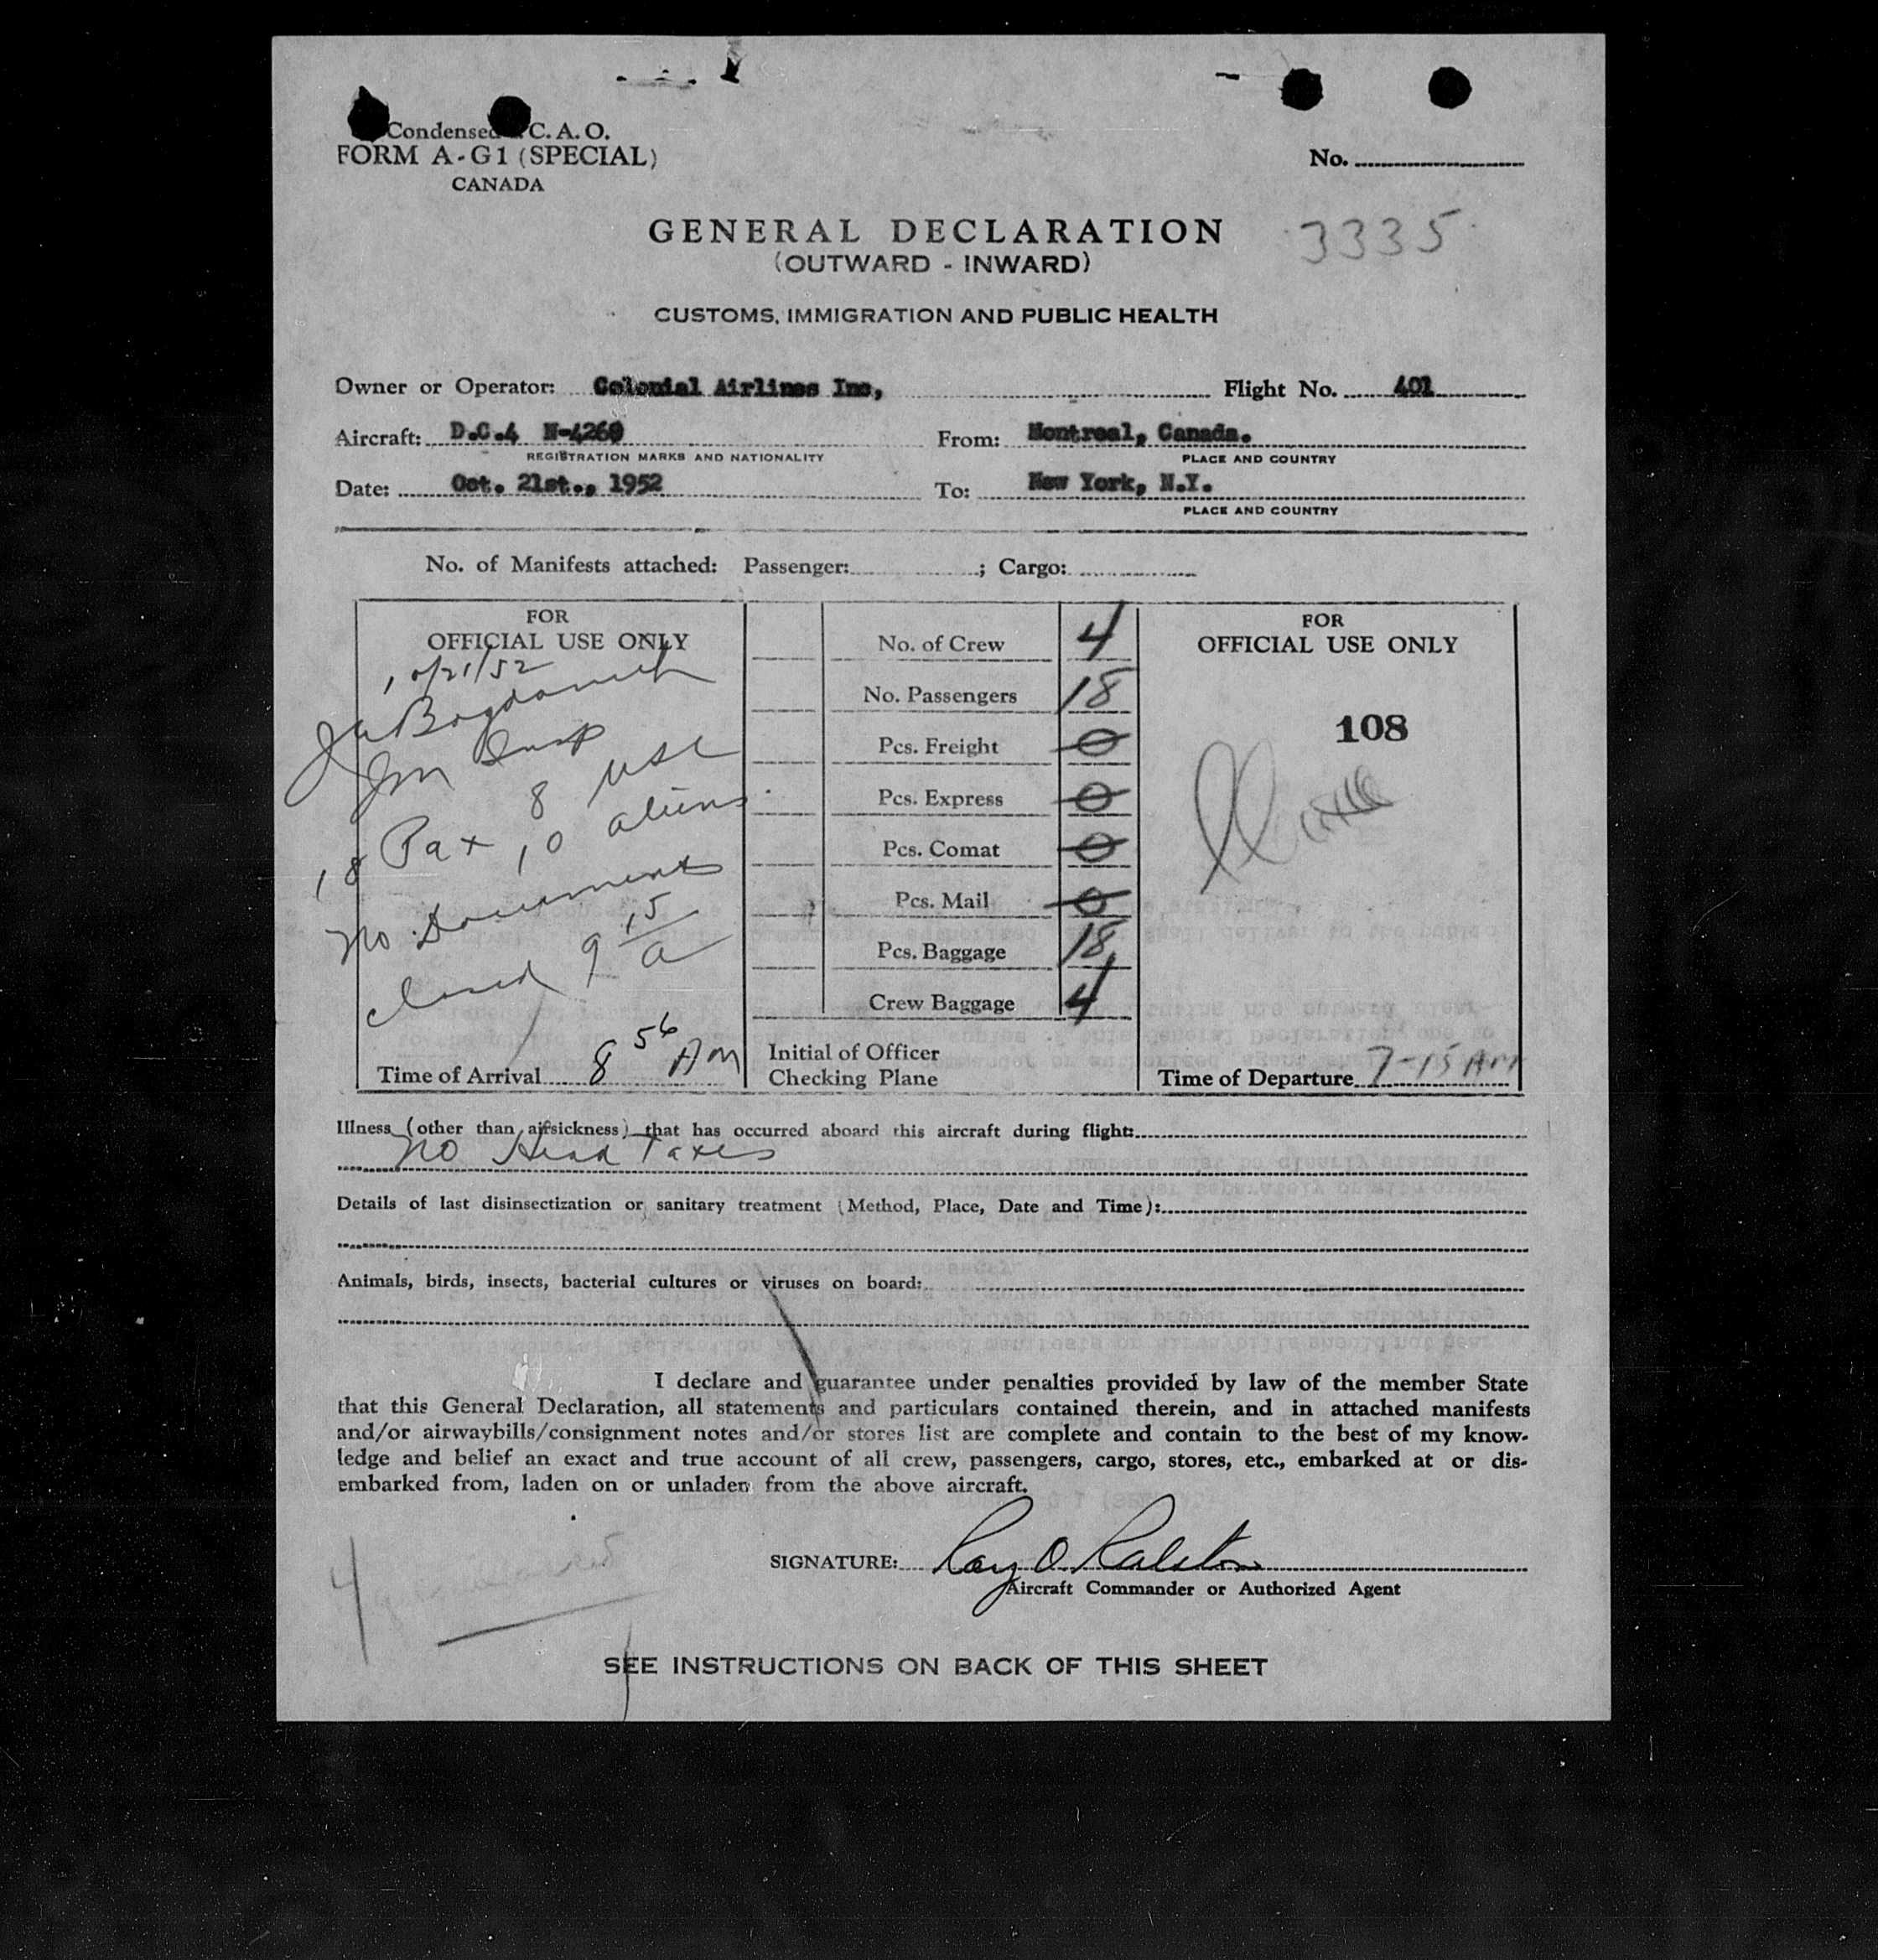 Condensed C. A. O.
FORM A-G1 (SPECIAL)
CANADA
No.
3335
GENERAL DECLARATION
(OUTWARD - INWARD)
CUSTOMS, IMMIGRATION AND PUBLIC HEALTH
Owner or Operator: Colonial Airlines Inc, Flight No. 401
Aircraft: D.C.4 N-4260 From: Montreal, Canada.
REGISTRATION MARKS AND NATIONALITY PLACE AND COUNTRY
Date: Oct. 21st., 1952 To: New York, N.Y.
PLACE AND COUNTRY
No. of Manifests attached: Passenger: ; Cargo:
FOR
OFFICIAL USE ONLY
10/21/52
Bogdanich
Im Insp
8 USC
18 Pax 10 aliens
No Documents
closed 9 15 a
Time of Arrival 8 56 Am
No. of Crew 4
No. Passengers 18
Pcs. Freight 0
Pcs. Express 0
Pcs. Comat 0
Pcs. Mail 0
Pcs. Baggage 18
Crew Baggage 4
Initial of Officer
Checking Plane
FOR
OFFICIAL USE ONLY
108
Time of Departure 7-15 AM
Illness (other than airsickness) that has occurred aboard this aircraft during flight:
No Head Taxes
Details of last disinsectization or sanitary treatment (Method, Place, Date and Time):
Animals, birds, insects, bacterial cultures or viruses on board:
I declare and guarantee under penalties provided by law of the member State
that this General Declaration, all statements and particulars contained therein, and in attached manifests
and/or airwaybills/consignment notes and/or stores list are complete and contain to the best of my know-
ledge and belief an exact and true account of all crew, passengers, cargo, stores, etc., embarked at or dis-
embarked from, laden on or unladen from the above aircraft.
SIGNATURE: Ray O Ralston
Aircraft Commander or Authorized Agent
4
SEE INSTRUCTIONS ON BACK OF THIS SHEET